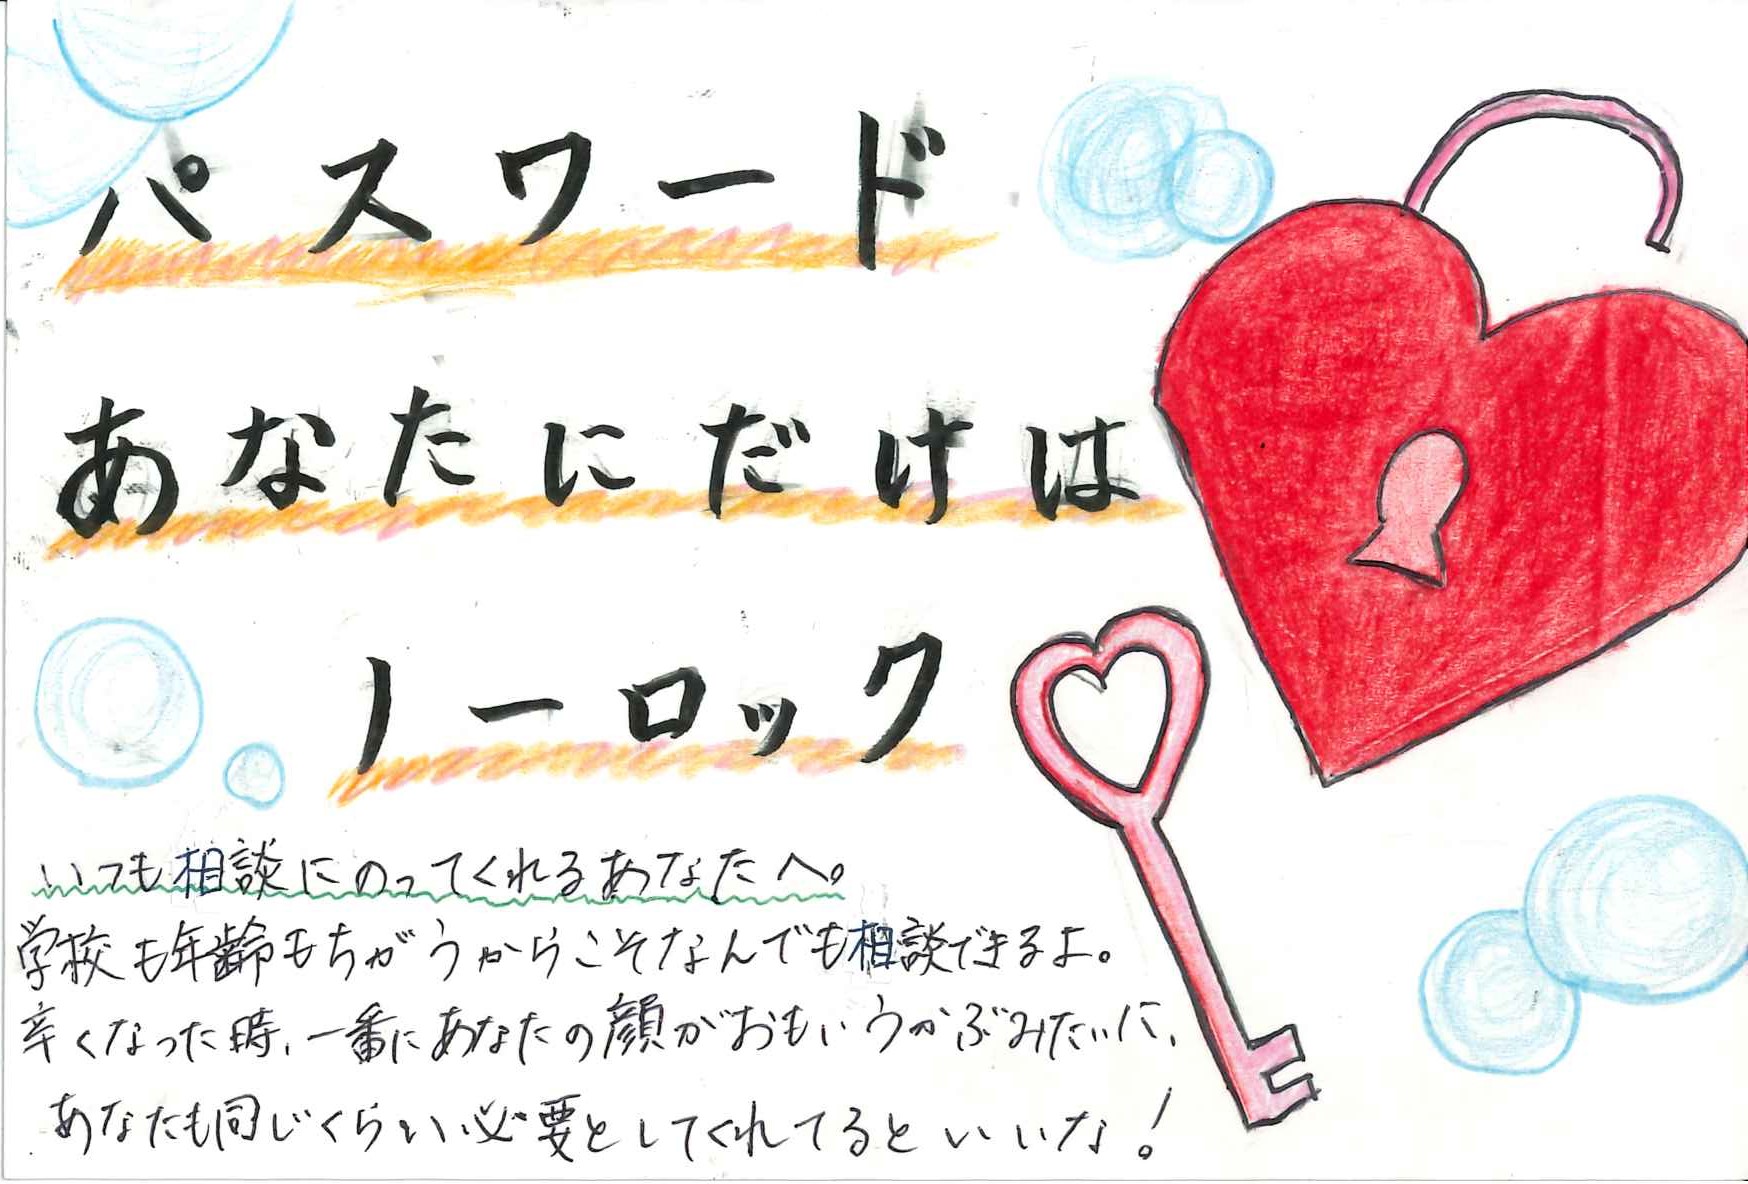 パスワード
あなたにだけは
ノーロック
いつも相談にのってくれるあなたへ。
学校も年齢もちがうからこそなんでも相談できるよ。
辛くなった時、一番にあなたの顔がおもいうかぶみたいに、
あなたも同じくらい必要としてくれてるといいな！